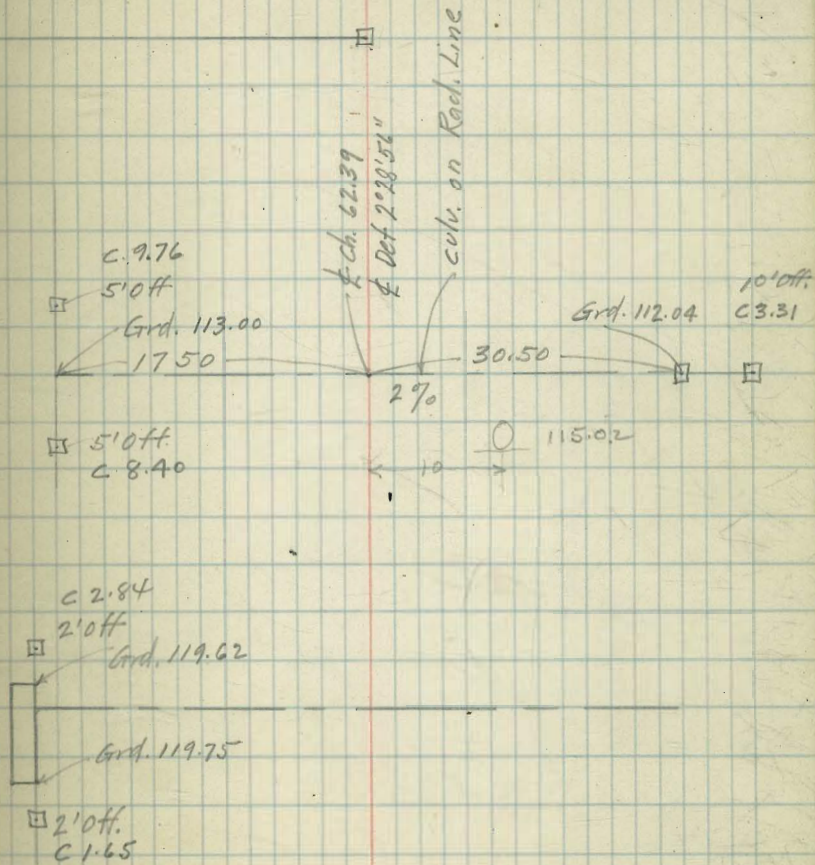 ℄ Ch. 62.39
℄ Def 2°28'56"
culv. on Rad. Line
C. 9.76
5' Off
Grd. 113.00
17 50
30.50
2%
Grd. 112.04
10' Off.
C 3.31
5' Off.
C 8.40
115.02
10
C 2.84
2' Off
Grd. 119.62
Grd. 119.75
2' Off.
C 1.65